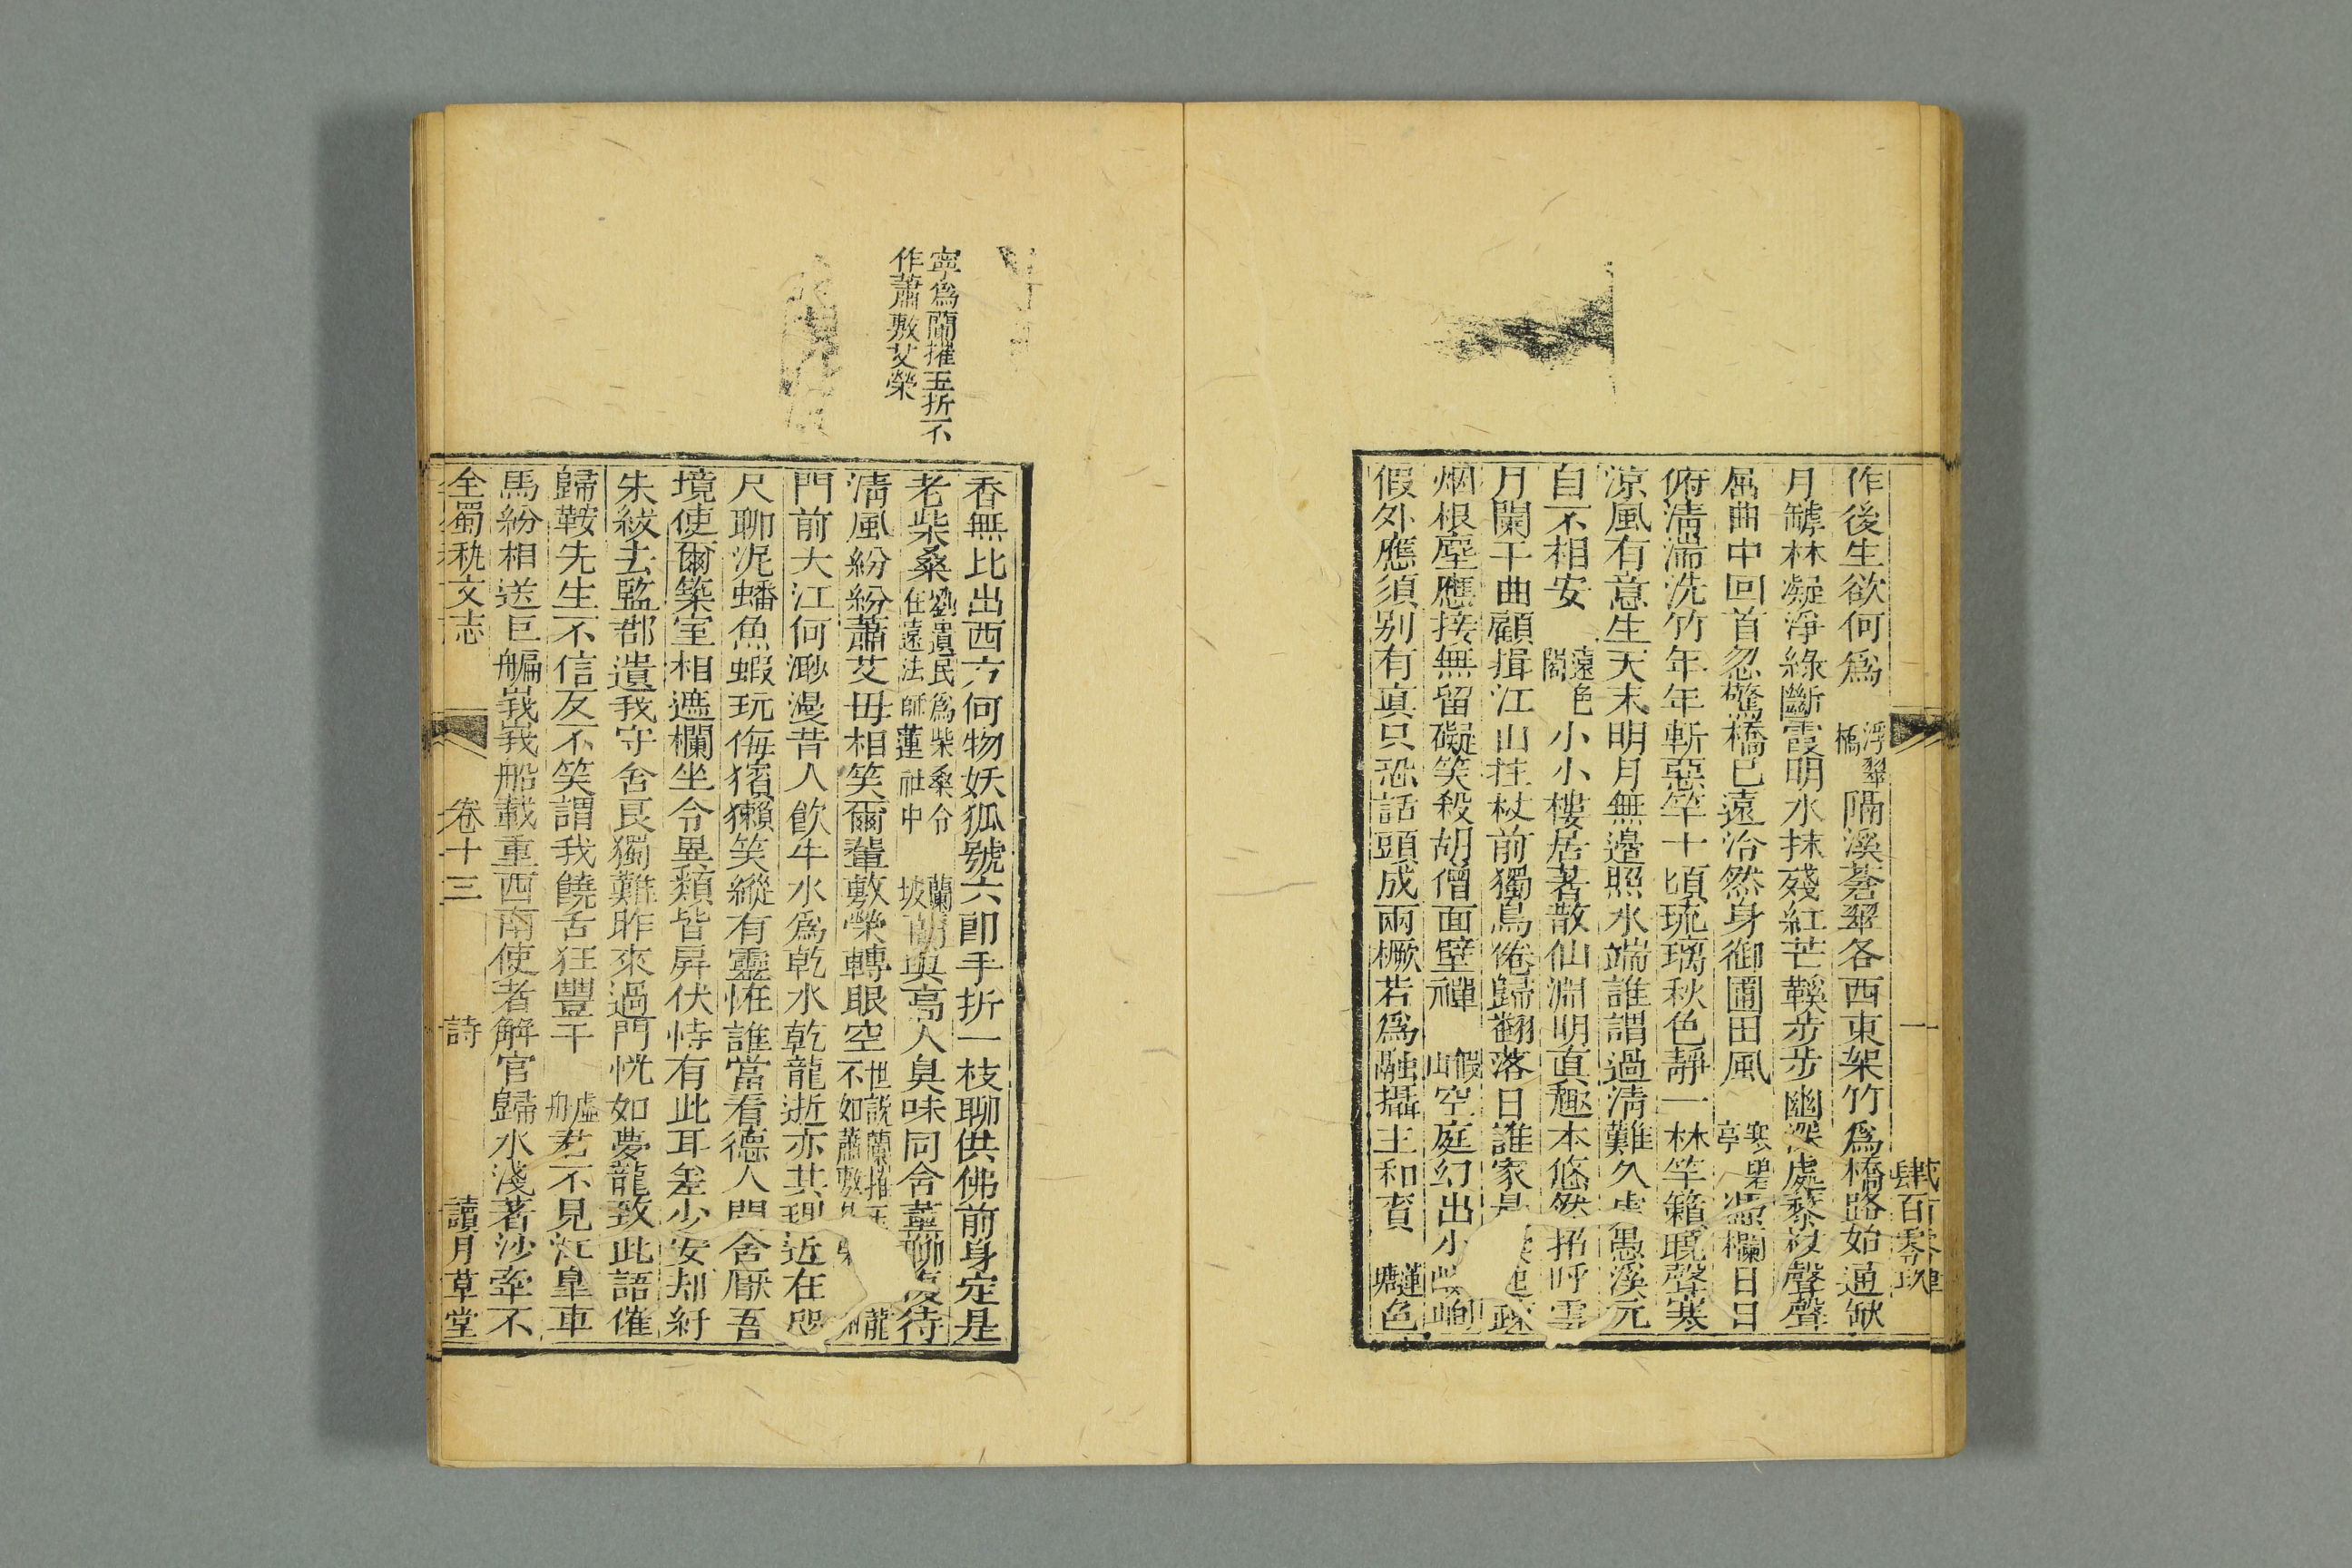 作後生欲何爲 浮翠橋 隔溪蒼翠各西東架竹爲橋路始通缺
月罅林凝淨綠斷霞明水抹殘紅芒鞵步步幽深處琴筑聲聲
屈曲中回首忽驚橋已遠泠然身御圃田風 寒碧亭 凭欄日日
俯清灞洗竹年年斬惡竿十頃琉璃秋色靜一林竽籟曉聲寒
涼風有意生天末明月無邊照水端誰謂過淸難久 愚溪元
自不相安 遠色閣 小小樓居著散仙淵明直趣本悠然招呼雲
月闌干曲顧揖江山拄杖前獨鳥倦歸翻落日誰家是 起疎
烟根塵應接無留礙笑殺胡僧面壁禪 假山 空庭幻出小 峋
假外應須别有真只恐話頭成兩橛若爲融攝主和賓 蓮塘 色
香無比出西方何物妖狐號六郎手折一枝聊供佛前身定是
老柴桑 劉遺民爲柴桑令住遠法師蓮社中 蘭坡 蘭與高人臭味同舍董聊復待
淸風紛紛蕭艾毋相笑爾輩敷榮轉眼空 世說蘭摧玉不如蕭敷 龍
門前大江何渺漫昔人飮牛水爲乾水乾龍逝亦其理近在咫
尺聊泥蟠魚蝦玩侮獱獺笑縱有靈恠誰當看德人門舍厭吾
境使爾築室相遮欄坐令異類皆屏伏恃有此耳差少安却紆
朱紱去監郡遺我守舍良獨難昨來過門恍如夢龍致此語催
歸鞍先生不信反不笑謂我饒舌狂豐干 虛舟 君不見江皐車
馬紛相送巨艑峩峩船載重西南使者解官歸水淺著沙牽不
全蜀秇文志 卷十三 詩 讀月草堂
寧爲蘭摧玉折不
作蕭敷艾榮